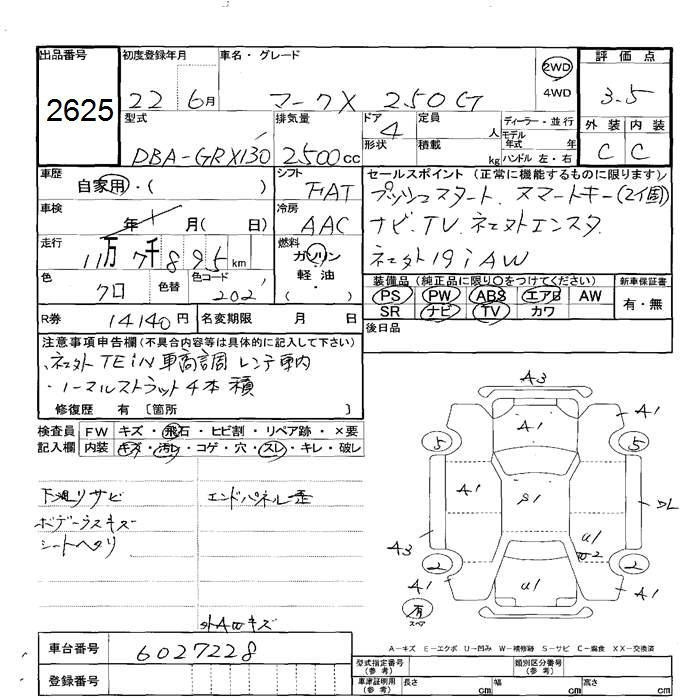 出品番号
2625
初度登録年月
22 6月
車名・グレード
マークX 250GT
2WD
4WD
評価点
3.5
外装 内装
C C
型式
DBA-GRX130
排気量
2500cc
ドア
4
形状
定員 人
積載 kg
ディーラー・並行
モデル年式 年
ハンドル 左・右
車歴
自家用・( )
シフト
FAT
車検
年 月( 日)
冷房
AAC
走行
11万7千895km
燃料
ガソリン・軽油・( )
色
クロ
色替
色コード
202
セールスポイント(正常に機能するものに限ります)
プッシュスタート、スマートキー(2個)
ナビ、TV、社外エンスタ
社外19iAW
装備品(純正品に限り○をつけてください)
PS PW ABS エアB AW
SR ナビ TV カワ
新車保証書
有・無
後日品
R券 14140円
名変期限 月 日
注意事項申告欄(不具合内容等は具体的に記入して下さい)
・社外TEIN車高調 レンチ車内
・ノーマルストラット4本積
修復歴 有 [箇所 ]
検査員記入欄
FW キズ・飛石・ヒビ割・リペア跡・×要
内装 キズ・汚レ・コゲ・穴・スレ・キレ・破レ
下廻リサビ
エンドパネル歪
ボデーラスキズ
シートヘタリ
外AWキズ
A3
A1
A1
5
5
A1
S1
DL
U1
W2
A3
2
2
A1
U1
A1
有
スペア
A-キズ E-エクボ U-凹み W-補修跡 S-サビ C-腐食 XX-交換済
車台番号
6027228
登録番号
型式指定番号(参考)
類別区分番号(参考)
車庫証明用(参考) 長さ cm 幅 cm 高さ cm